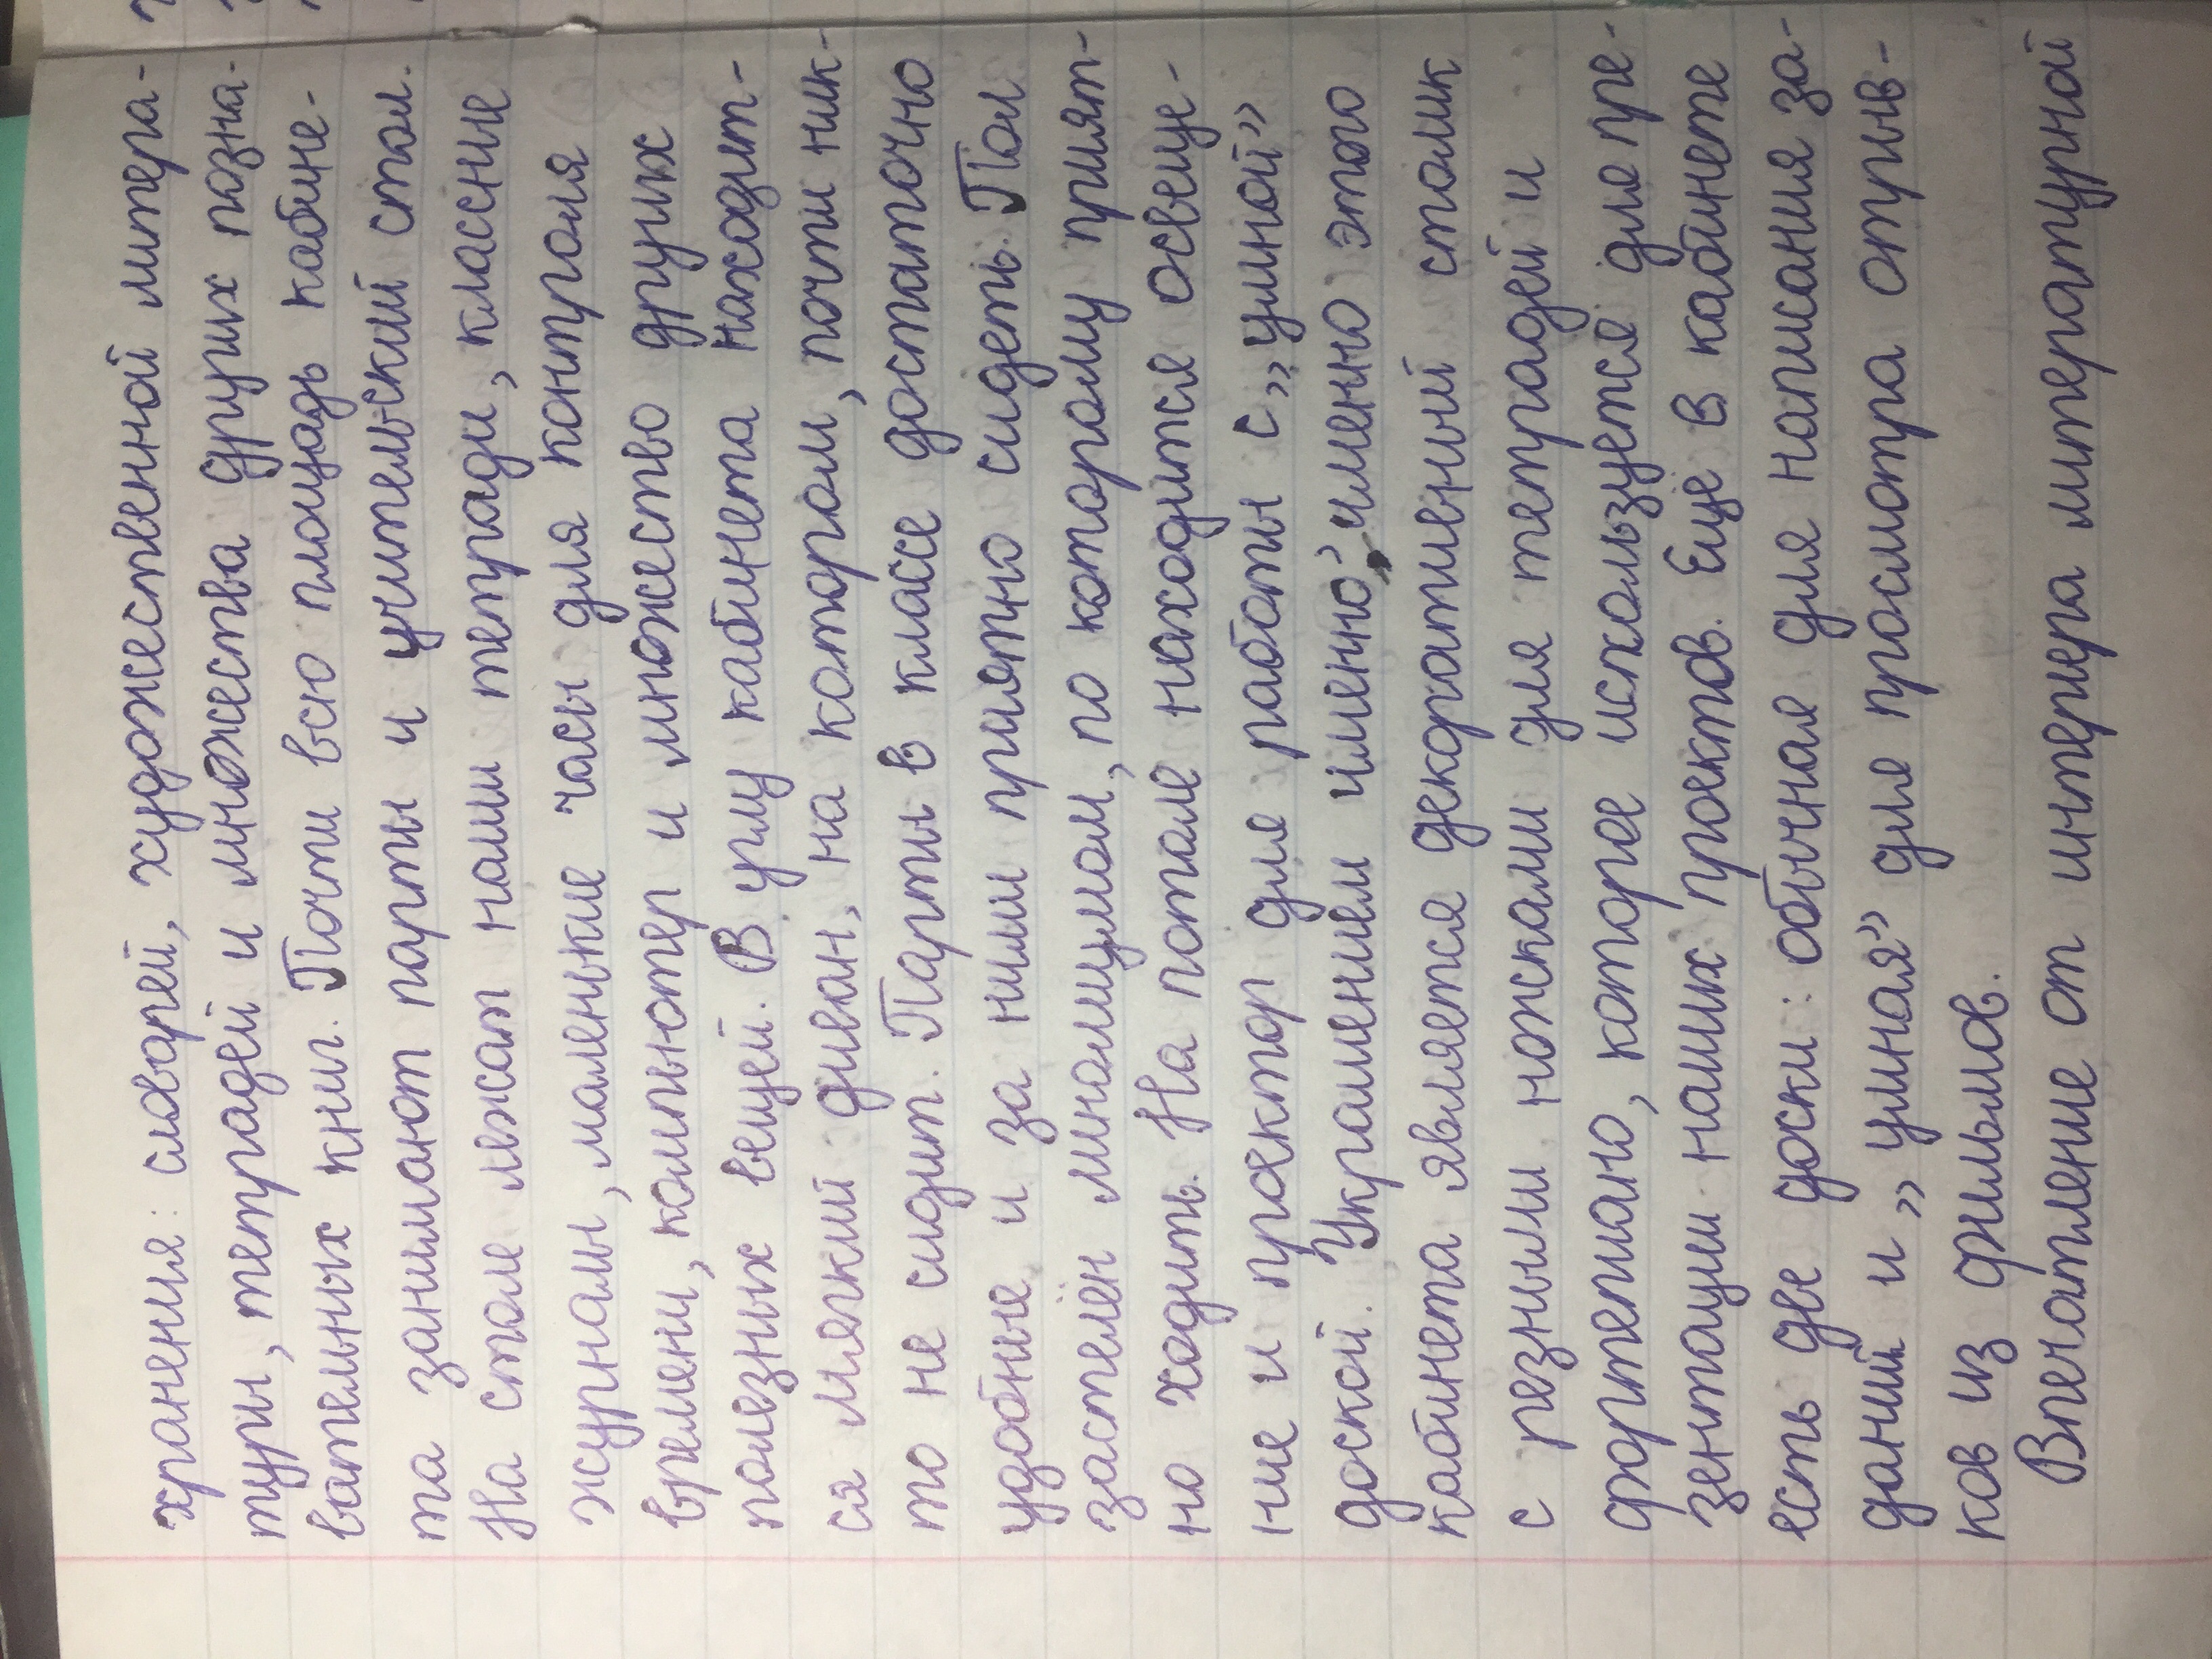 хранения: словарей, художественной литера-
туры, тетрадей и множества других позна-
вательных книг. Почти всю площадь кабине-
та занимают парты и учительский стол.
На столе лежат наши тетради, классные
журналы, маленькие часы для контроля
времени, компьютер и множество других
полезных вещей. В углу кабинета находит-
ся мягкий диван, на котором, почти ник-
то не сидит. Парты в классе достаточно
удобные и за ними приятно сидеть. Пол
застелён линолиумом, по которому прият-
но ходить. На потоле находится освеще-
ние и проектор для работы с „умной”
доской. Украшением именно, именно этого
кабинета является декоративный столик
с резными ножками для тетрадей и
фортепиано, которое используется для пре-
зентации наших проектов. Ещё в кабинете
есть две доски: обычная для написания за-
даний и „умная” для просмотра отрыв-
ков из фильмов.
Впечатление от интерьера литературной